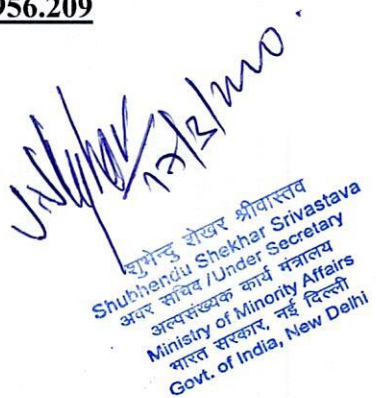 956.209
शुभेन्दु शेखर श्रीवास्तव
Shubhendu Shekhar Srivastava
अवर सचिव /Under Secretary
अल्पसंख्यक कार्य मंत्रालय
Ministry of Minority Affairs
भारत सरकार, नई दिल्ली
Govt. of India, New Delhi